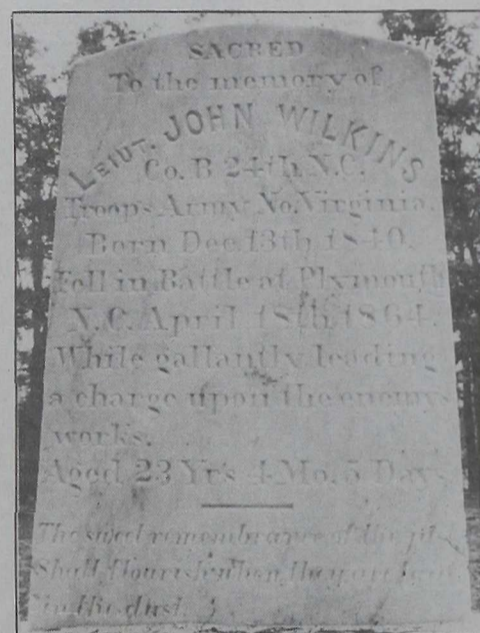 SACRED
To the memory of
LEIUT. JOHN WILKINS
Co. B 24th N.C.
Troops Army No. Virginia.
Born Dec. 13th 1840.
Fell in Battle at Plymouth
N.C. April 18th 1864.
While gallantly leading
a charge upon the enemys
works.
Aged 23 Yrs 4 Mo. 5 Days
The sweet remembrance of the
Shall flourish when they
in the dust.